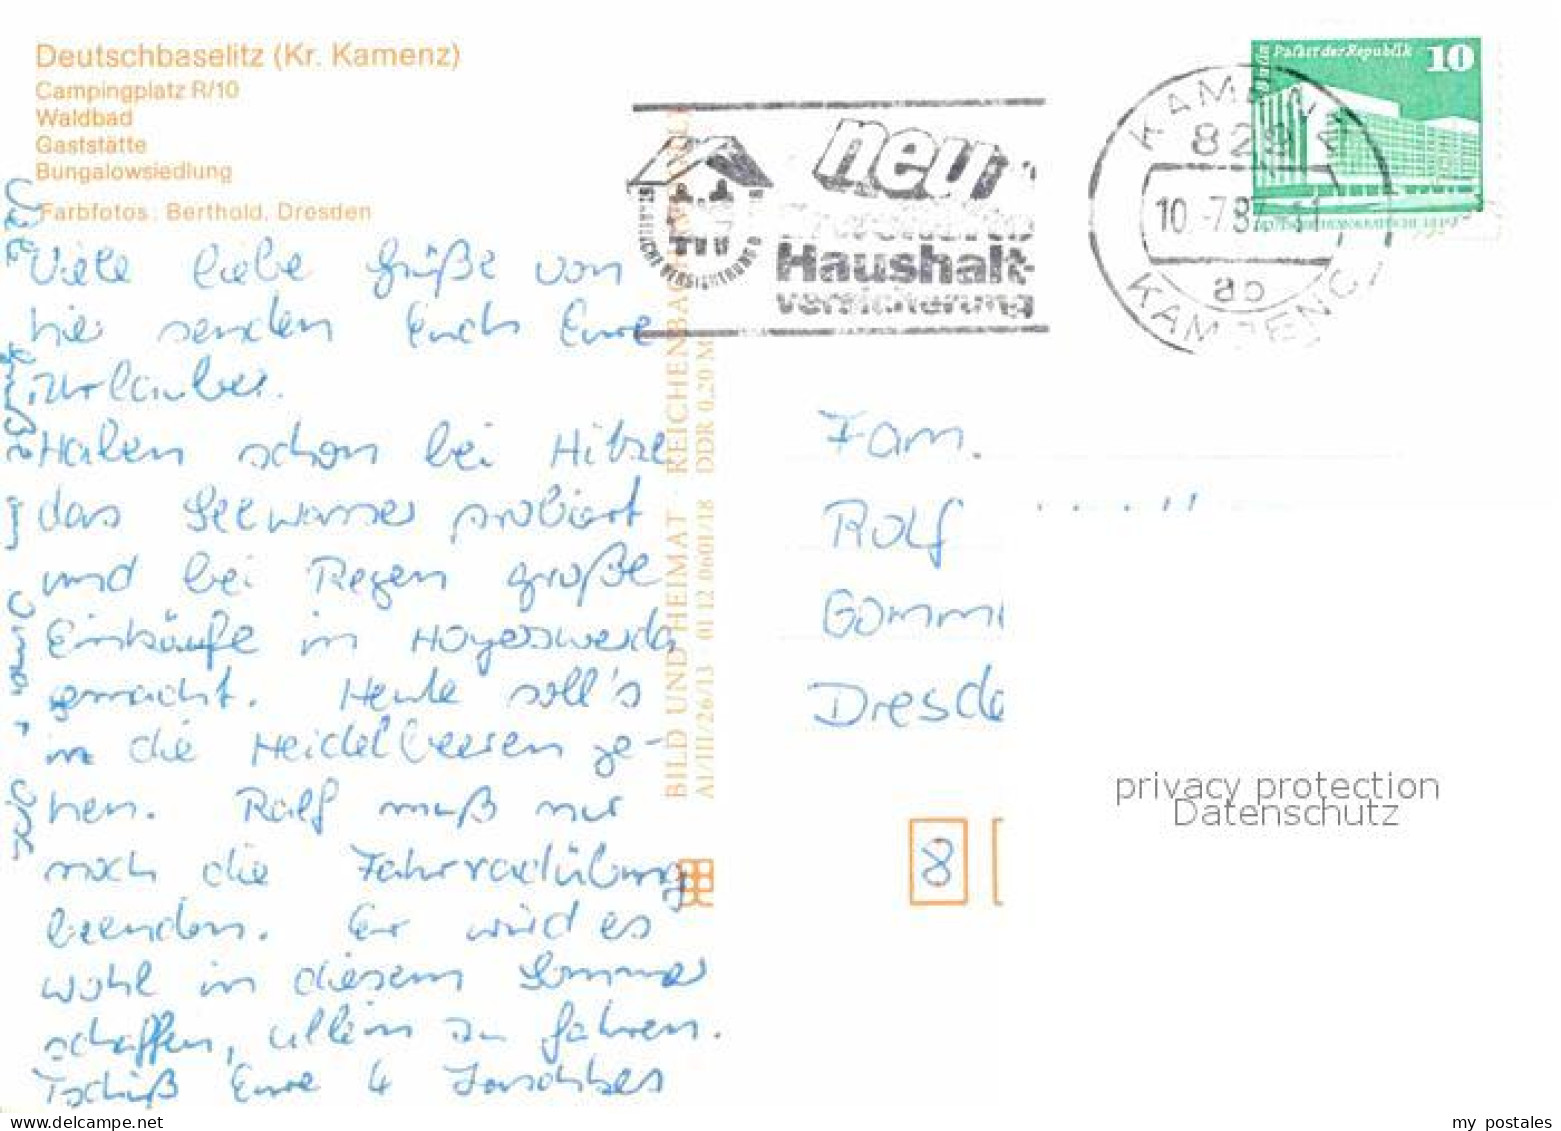 Deutschbaselitz (Kr. Kamenz)
Campingplatz R/10
Waldbad
Gaststätte
Bungalowsiedlung
Farbfotos: Berthold, Dresden
Viele liebe Grüße von
hier senden Euch Eure
Urlauber.
Haben schon bei Hitze
das Seewasser probiert
und bei Regen große
Einkäufe in Hoyerswerda
gemacht. Heute soll's
in die Heidelbeeren ge-
hen. Ralf muß nur
noch die Fahrradübung
beenden. Er wird es
wohl in diesem Sommer
schaffen, allein zu fahren.
Tschüß Eure 4
BILD UND HEIMAT REICHENBACH
A1/III/26/13 01 12 0601/18 DDR 0,20 M
neu
Erweiterte
Haushalt-
versicherung
STAATLICHE VERSICHERUNG D
KAMENZ
829
10.-7.87-11
ab
KAMJENC
Palast der Republik 10
Fam.
Rolf
Gommi
Dresde
8
privacy protection
Datenschutz
my postales